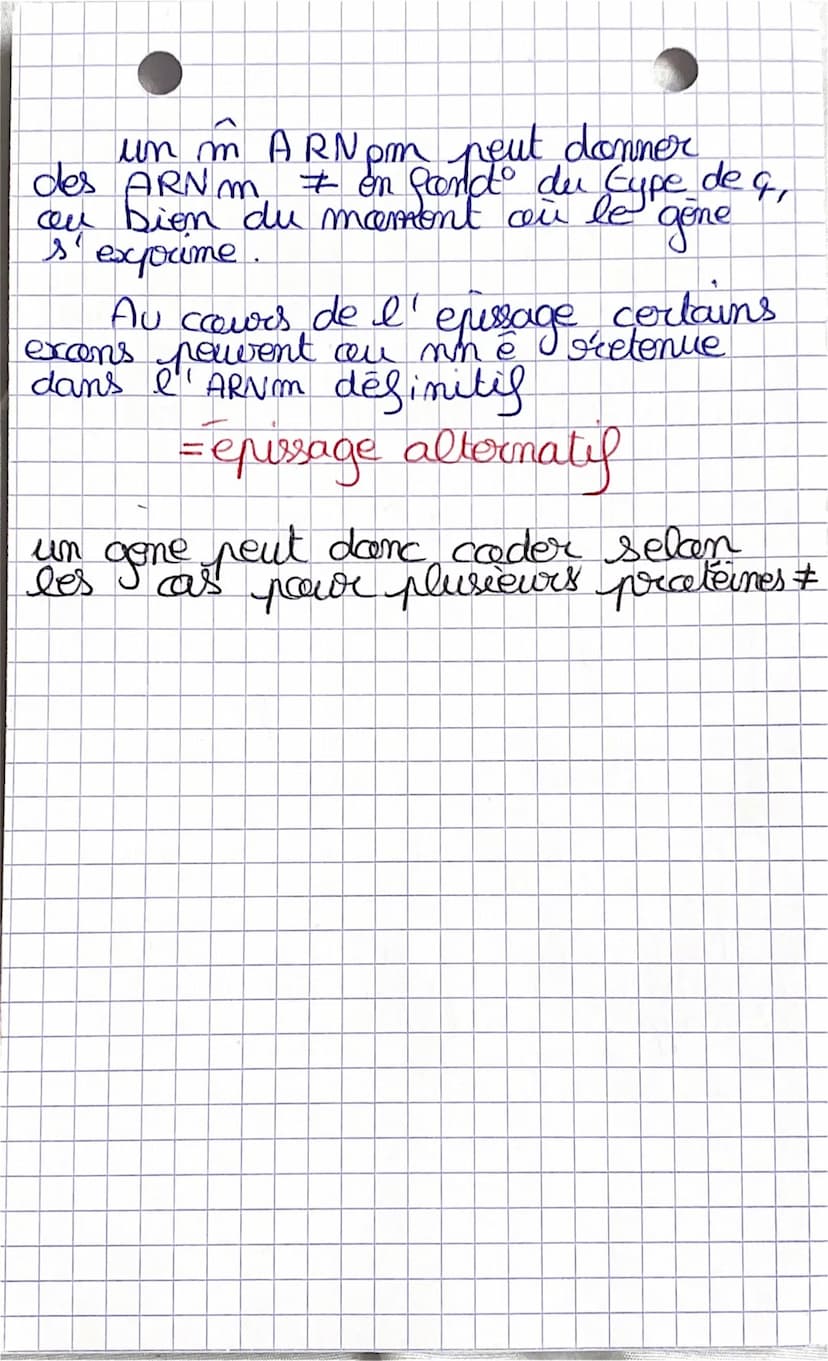 un m̂ ARNpm peut donner
des ARNm ≠ en fonct° du type de ç,
ou bien du moment où le gène
s'exprime.
Au cours de l'epissage certains
exons peuvent ou nn ê retenue
dans l'ARNm définitif
= épissage alternatif
un gène peut donc coder selon
les cas pour plusieurs protéines ≠